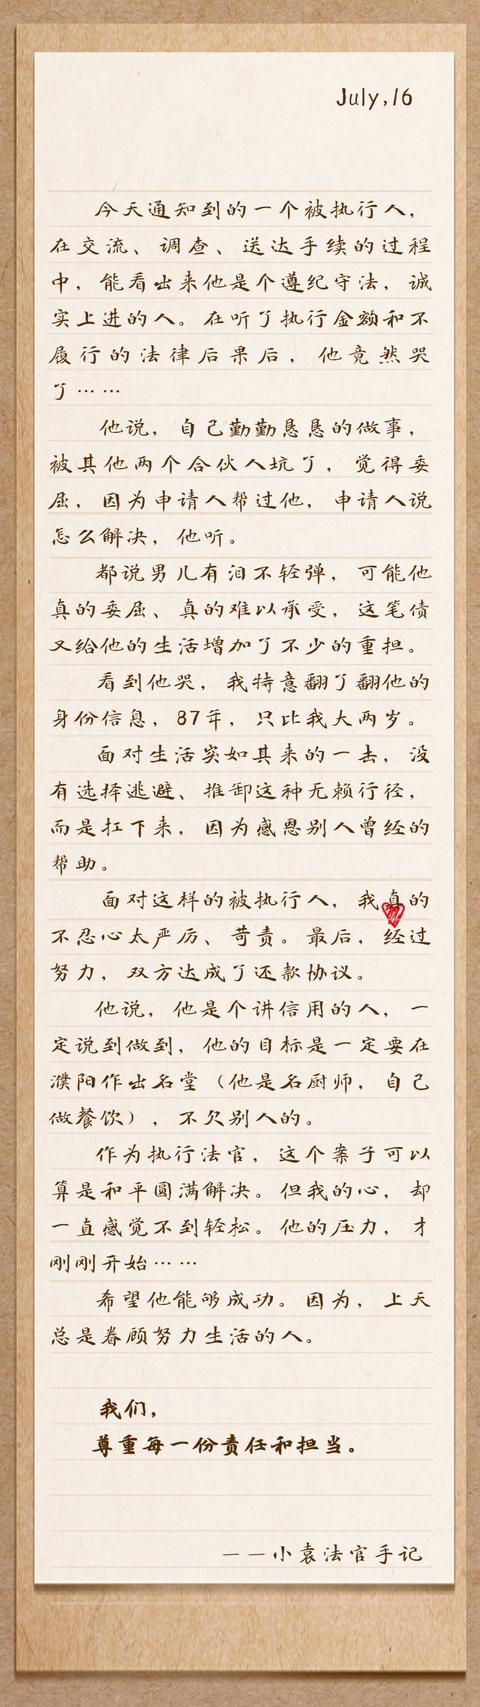 July,16
今天通知到的一个被执行人，
在交流、调查、送达手续的过程
中，能看出来他是个遵纪守法，诚
实上进的人。在听了执行金额和不
履行的法律后果后，他竟然哭
了……
他说，自己勤勤恳恳的做事，
被其他两个合伙人坑了，觉得委
屈，因为申请人帮过他，申请人说
怎么解决，他听。
都说男儿有泪不轻弹，可能他
真的委屈、真的难以承受，这笔债
又给他的生活增加了不少的重担。
看到他哭，我特意翻了翻他的
身份信息，87年，只比我大两岁。
面对生活突如其来的一击，没
有选择逃避、推卸这种无赖行径，
而是扛下来，因为感恩别人曾经的
帮助。
面对这样的被执行人，我真的
不忍心太严厉、苛责。最后，经过
努力，双方达成了还款协议。
他说，他是个讲信用的人，一
定说到做到，他的目标是一定要在
濮阳作出名堂（他是名厨师，自己
做餐饮），不欠别人的。
作为执行法官，这个案子可以
算是和平圆满解决。但我的心，却
一直感觉不到轻松。他的压力，才
刚刚开始……
希望他能够成功。因为，上天
总是眷顾努力生活的人。
我们，
尊重每一份责任和担当。
——小袁法官手记